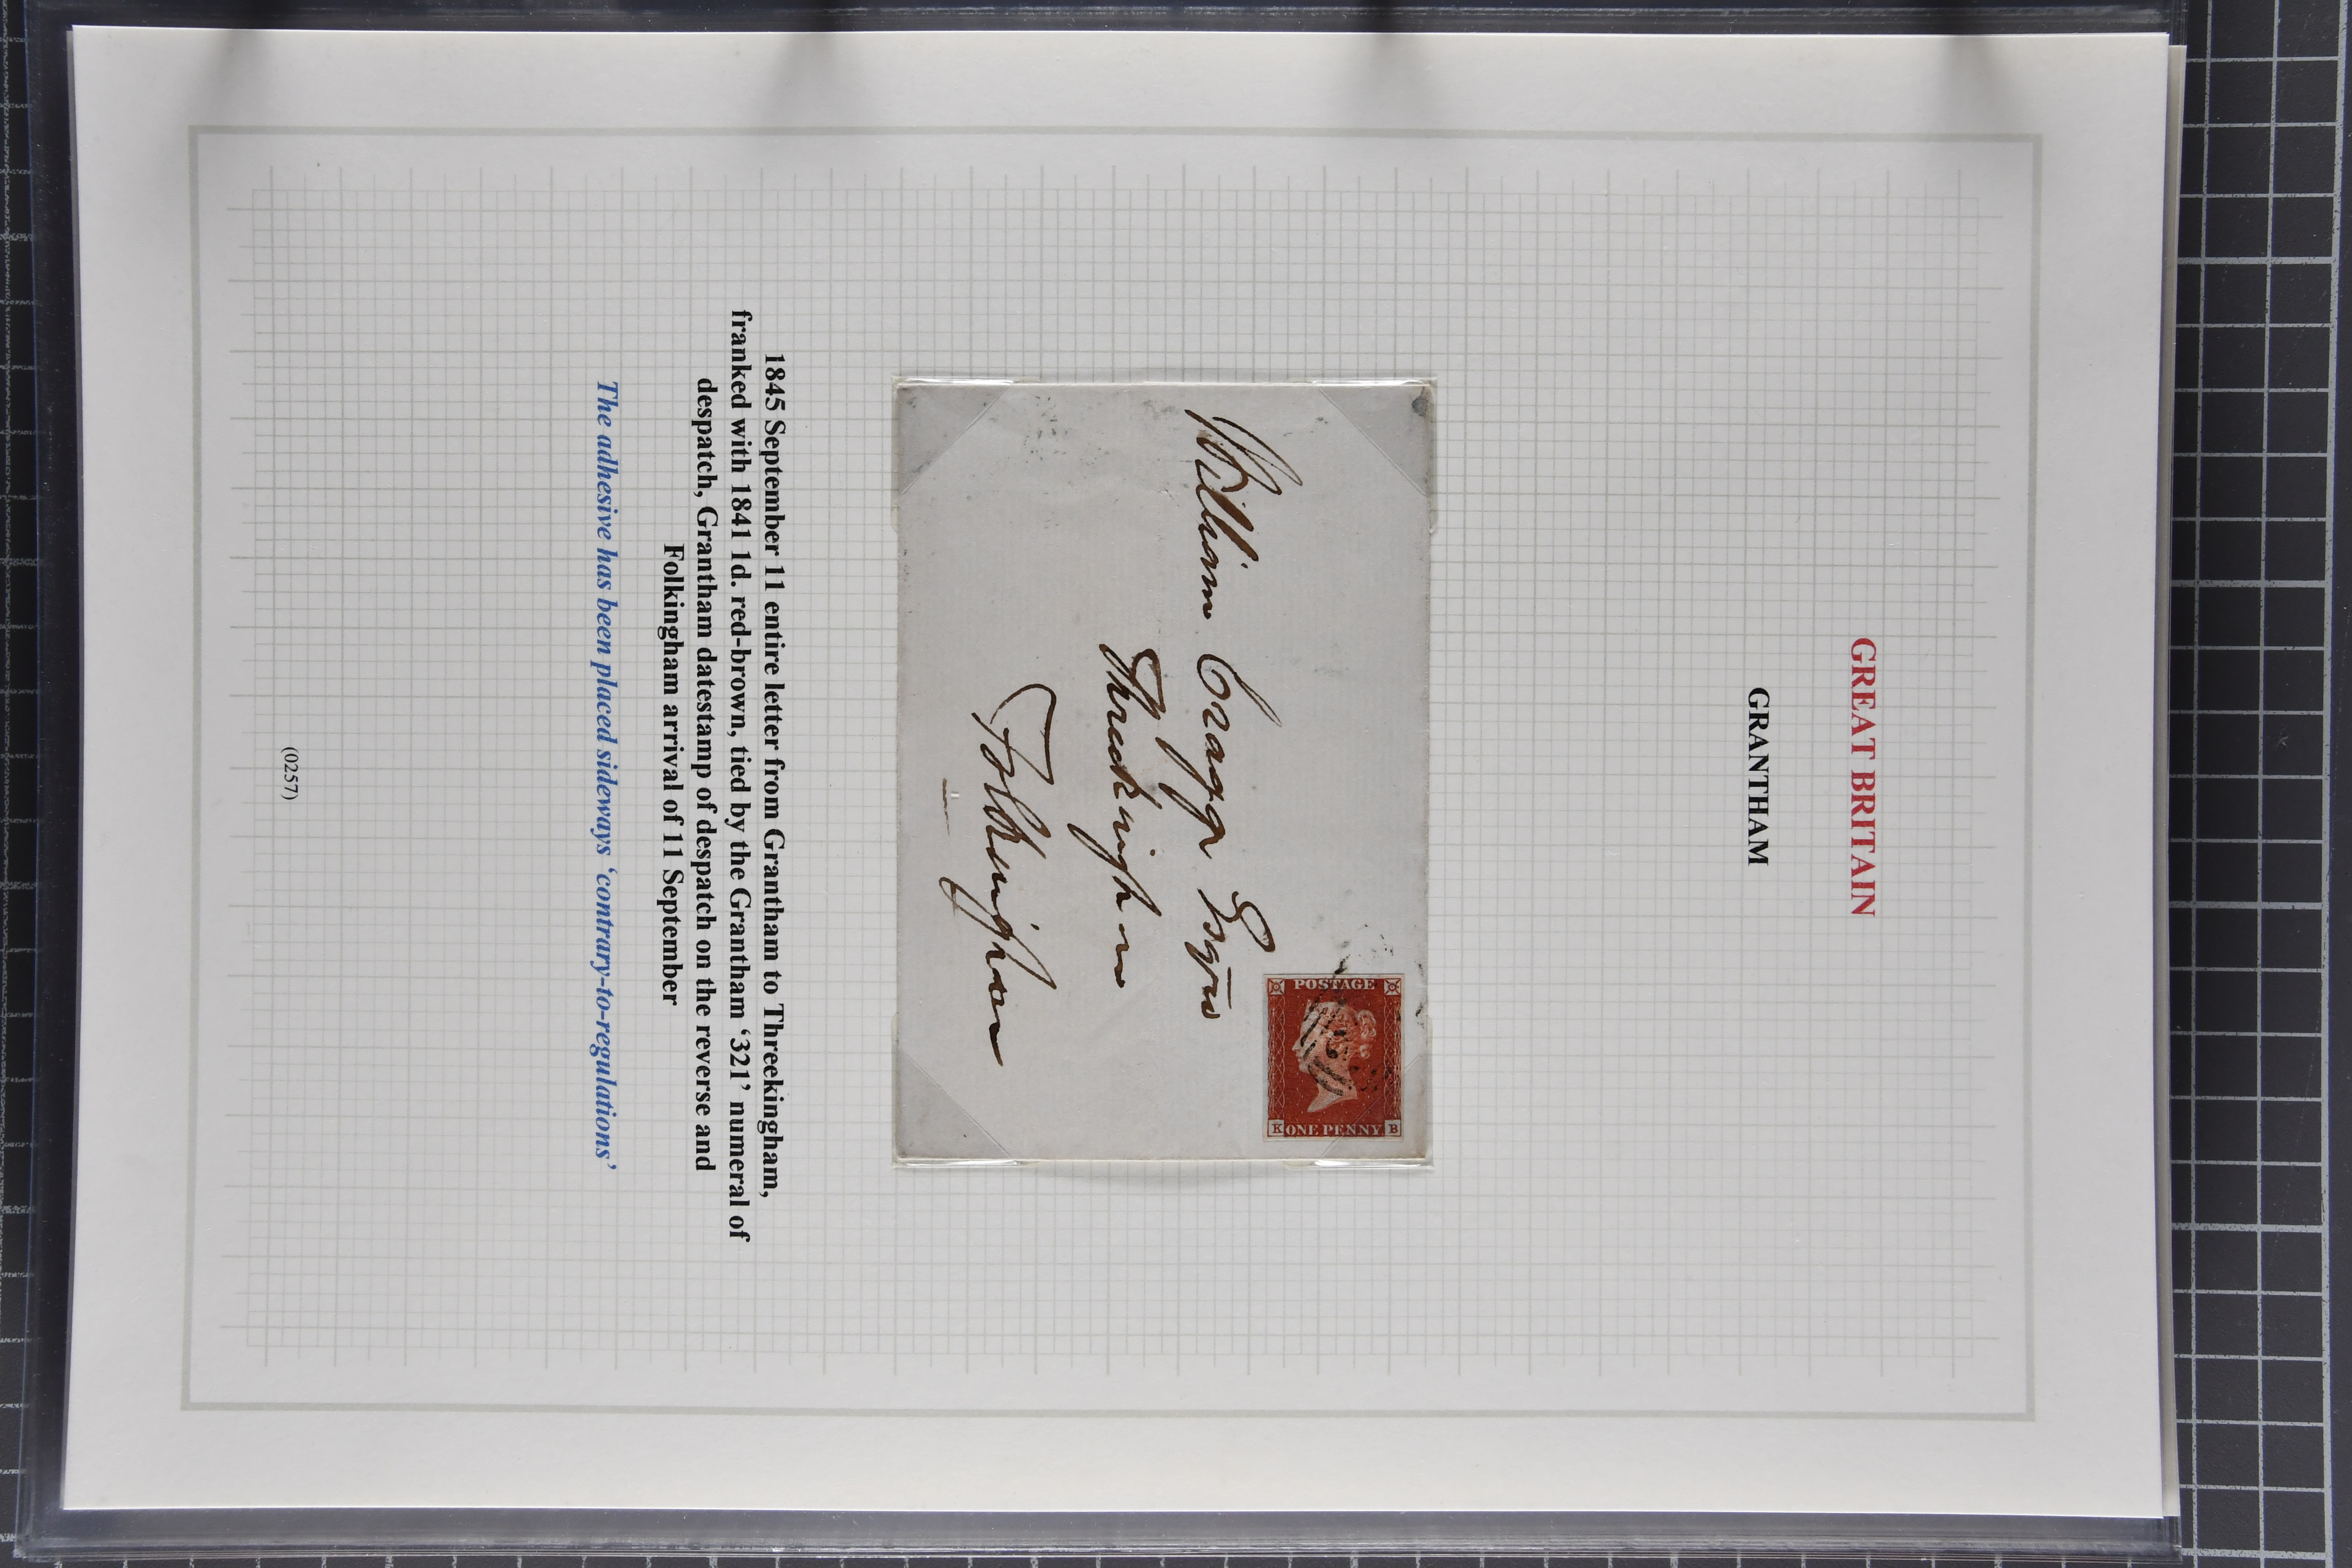 GREAT BRITAIN
GRANTHAM
POSTAGE
K ONE PENNY B
William Cragg Esqre
Threekingham
Folkingham
1845 September 11 entire letter from Grantham to Threekingham,
franked with 1841 1d. red-brown, tied by the Grantham ‘321’ numeral of
despatch, Grantham datestamp of despatch on the reverse and
Folkingham arrival of 11 September
The adhesive has been placed sideways ‘contrary-to-regulations’
(0257)